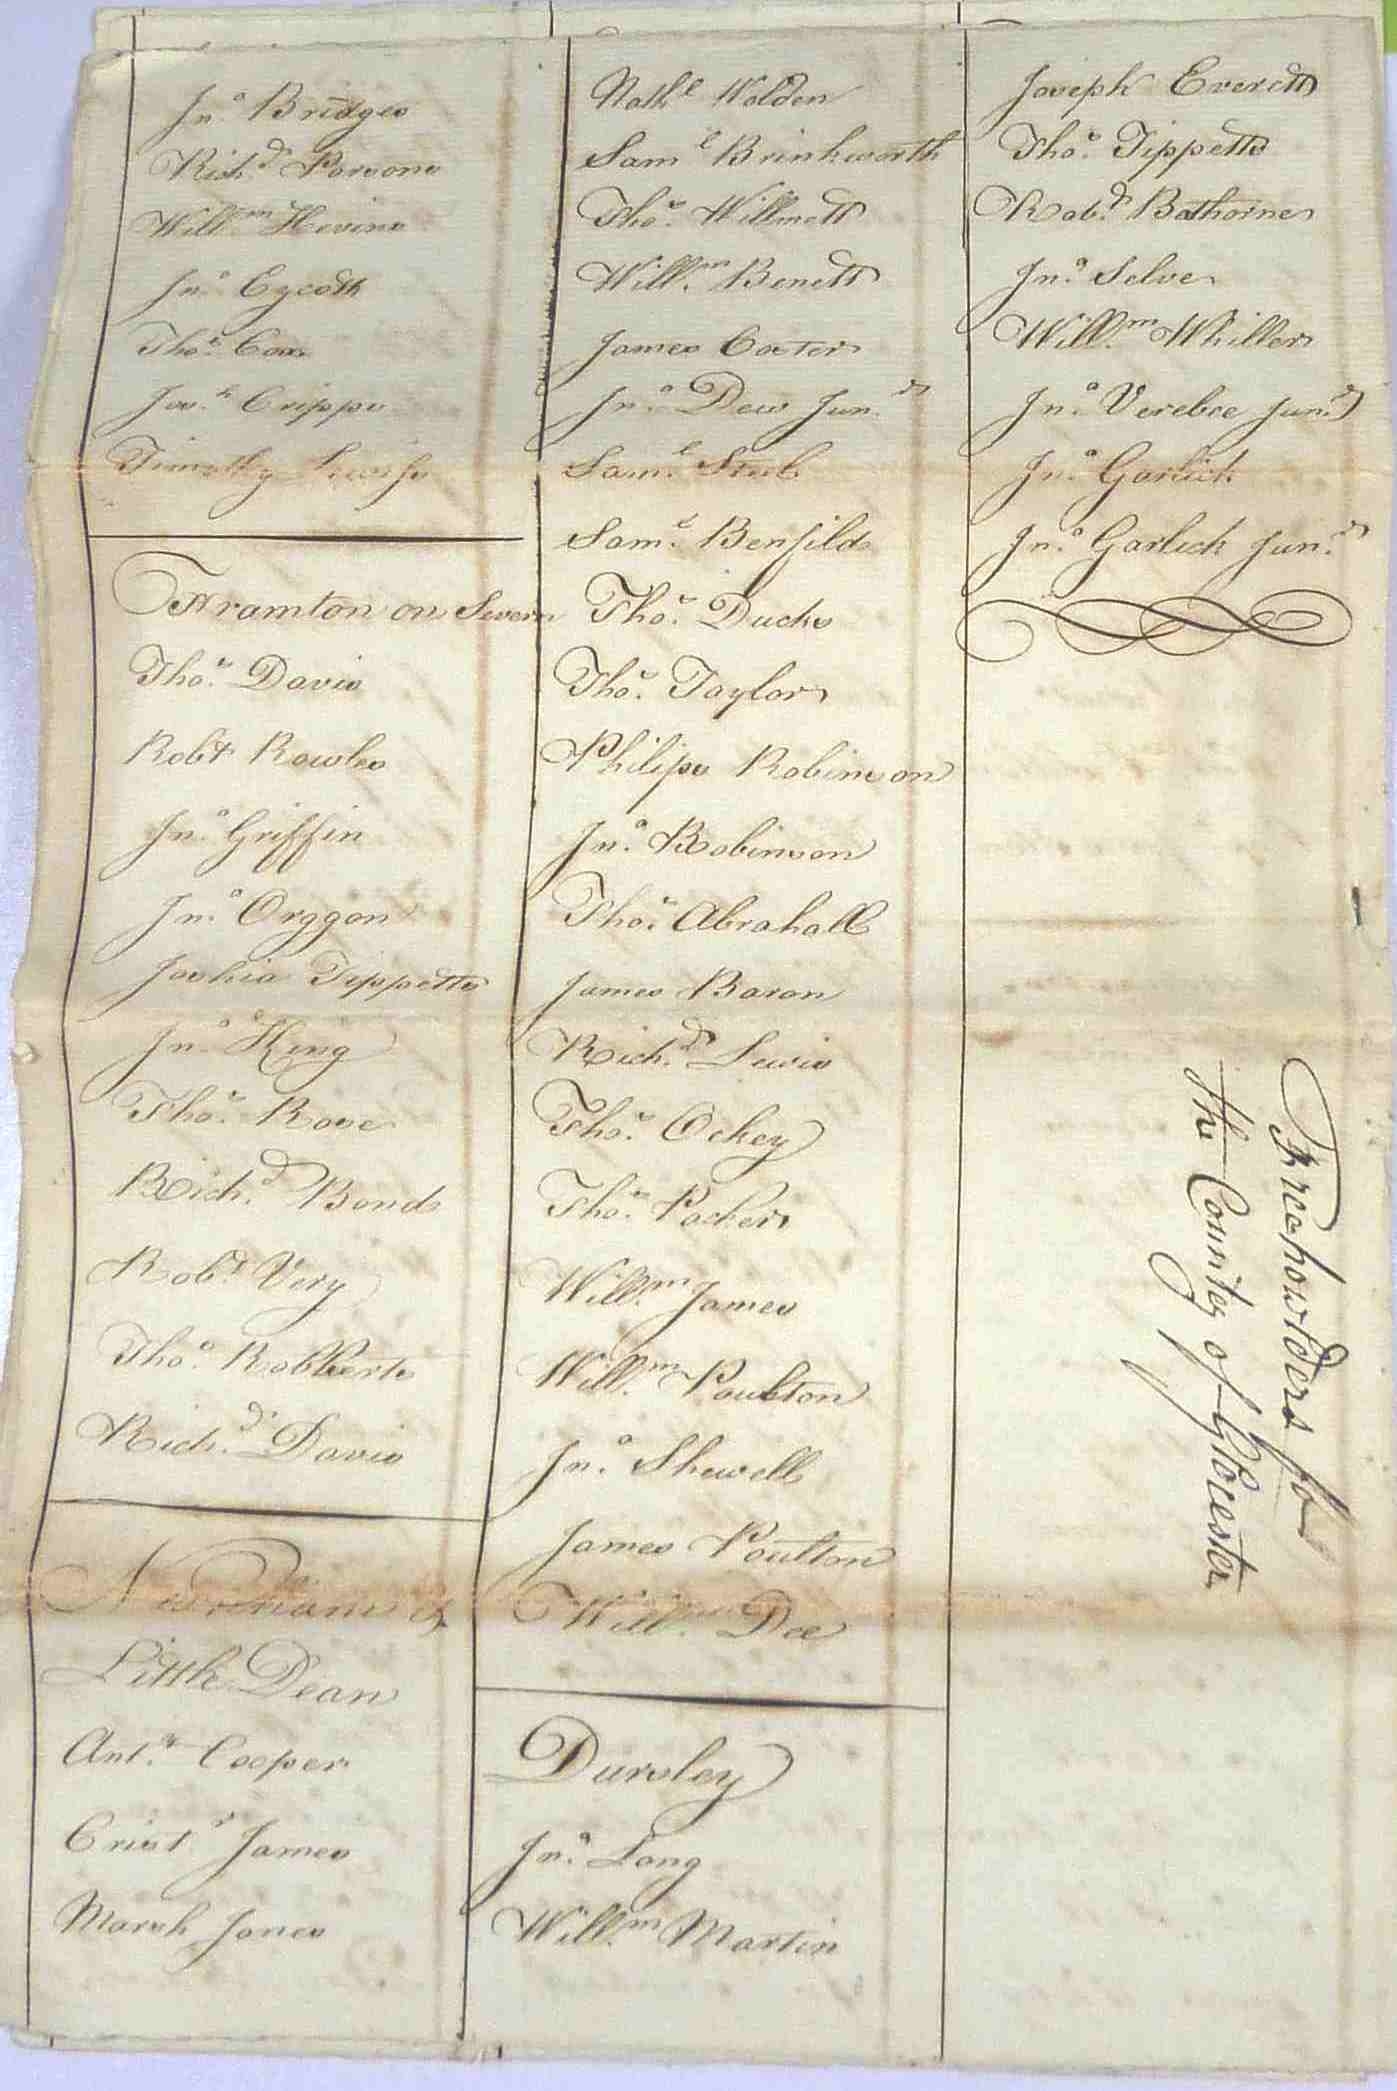 Jn.o Bridges
Rich.d Parsons
Will.m Hevins
Jn.o Eycott
Tho.s Cox
Jos.h Cripps
Timothy Lewis
Framton on Severn
Tho.s Davis
Robt Rowles
Jn.o Griffin
Jn.o Orggan
Joshia Tippetts
Jn.o King
Tho.s Rose
Rich.d Bond
Rob.t Very
Tho.s Robberts
Rich.d Davis
Newnham &
Little Dean
Ant.o Cooper
Crist.r James
Marsh Jones
Nath.l Wolden
Sam.l Brinkworth
Tho.s Willmott
Will.m Benett
James Coster
Jn.o Dew Jun.r
Sam.l Steel
Sam.l Benfild
Tho.s Ducks
Tho.s Taylor
Philips Robinson
Jn.o Robinson
Tho.s Abrahall
James Baron
Rich.d Lewis
Tho.s Ockey
Tho.s Packer
Will.m James
Will.m Poulton
Jn.o Shewell
James Poulton
Will.m Dee
Dursley
Jn.o Long
Will.m Martin
Joseph Everett
Tho.s Tippetts
Rob.t Bathorne
Jn.o Selve
Will.m Whiller
Jn.o Verebee Jun.r
Jn.o Garlick
Jn.o Garlick Jun.r
Freehowlders fo
the Countey of Glocester